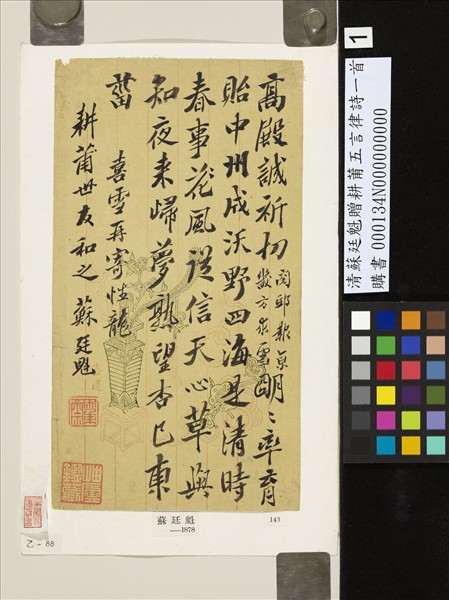 1
清蘇廷魁贈耕莆五言律詩一首
購書 000134N000000000
高殿誠祈切 閱邸報京畿方求雪 明〻率育
貽中州成沃野四海是清時
春事花風信天心草與
知夜來歸夢熟望杏已東
菑 喜雪再寄性龍
耕莆世友和之 蘇廷魁
蘇廷魁
—1878
143
乙-88